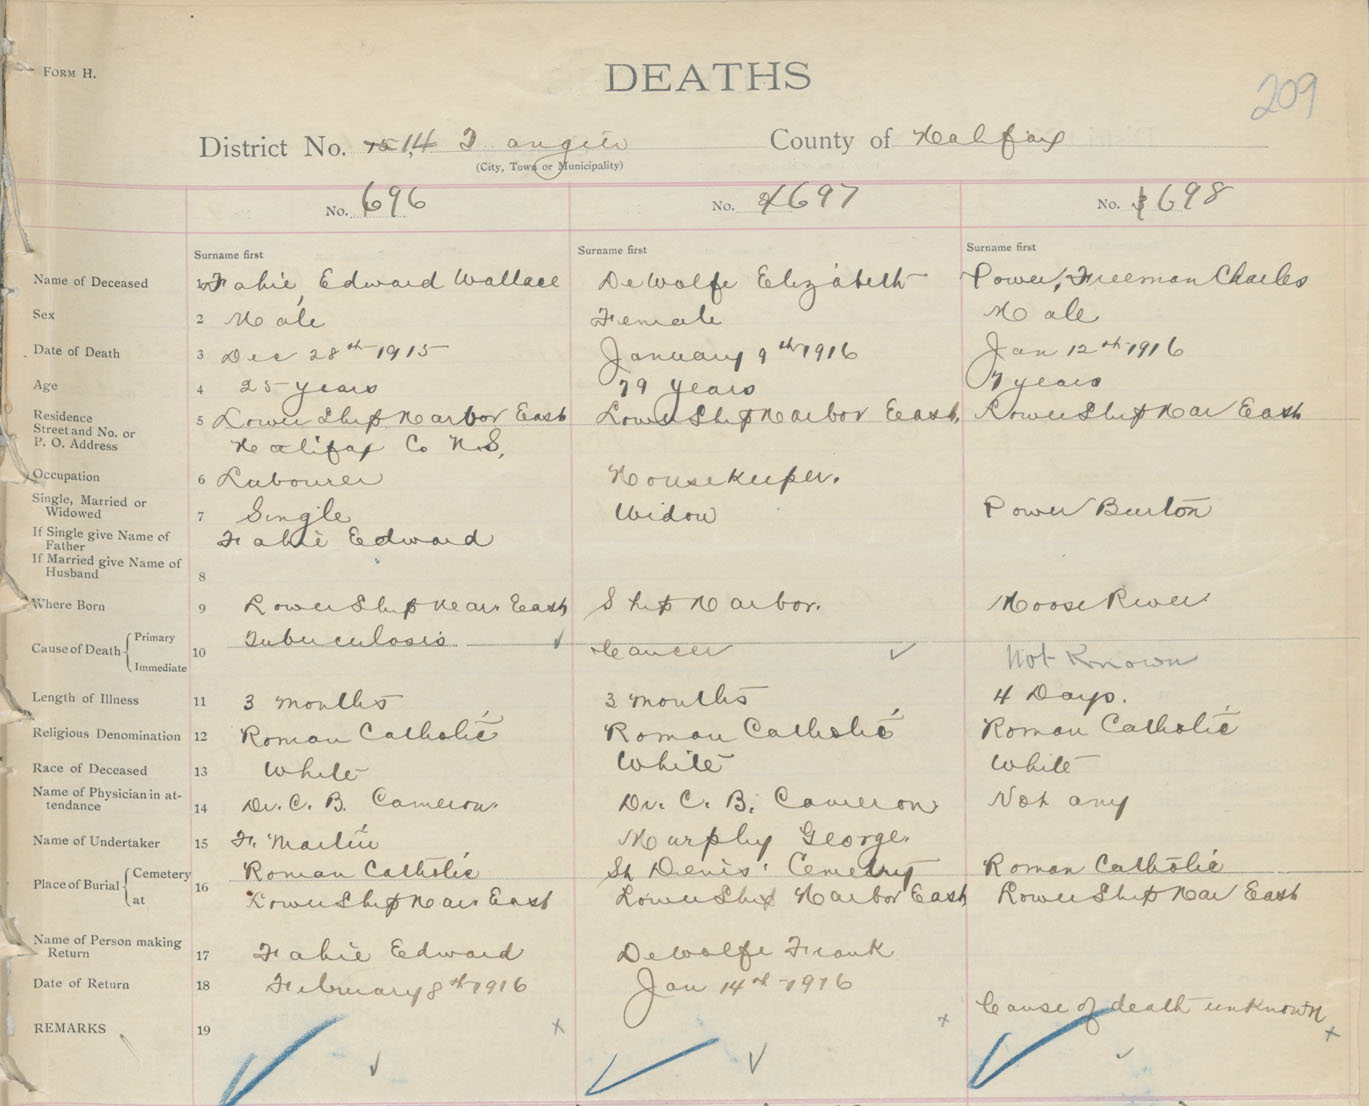 FORM H.
DEATHS
209
District No. 14 Tangier County of Halifax
(City, Town or Municipality)
No. 696 No. 697 No. 698
Surname first Surname first Surname first
Name of Deceased 1 Fahie Edward Wallace DeWolfe Elizabeth Power, Freeman Charles
Sex 2 Male Female Male
Date of Death 3 Dec 28th 1915 January 9th 1916 Jan 12th 1916
Age 4 25 years 79 years 7 years
Residence
Street and No. or 5 Lower Ship Harbor East Lower Ship Harbor East, Lower Ship Har East
P. O. Address Halifax Co N.S.
Occupation 6 Labourer Housekeeper.
Single, Married or
Widowed 7 Single Widow Power Burton
If Single give Name of
Father Fahie Edward
If Married give Name of
Husband 8
Where Born 9 Lower Ship Har. East Ship Harbor. Moose River
Cause of Death Primary Tuberculosis
10 Cancer Not Known
Immediate
Length of Illness 11 3 months 3 months 4 Days.
Religious Denomination 12 Roman Catholic Roman Catholic Roman Catholic
Race of Deceased 13 White White White
Name of Physician in at-
tendance 14 Dr. C. B. Cameron. Dr. C. B. Cameron Not any
Name of Undertaker 15 F. Martin Murphy George.
Place of Burial Cemetery 16 Roman Catholic St Denis' Cemetry Roman Catholic
at Lower Ship Har. East Lower Ship Harbor East Lower Ship Har East
Name of Person making
Return 17 Fahie Edward DeWolfe Frank
Date of Return 18 February 8th 1916 Jan 14th 1916
REMARKS 19 Cause of death unknown